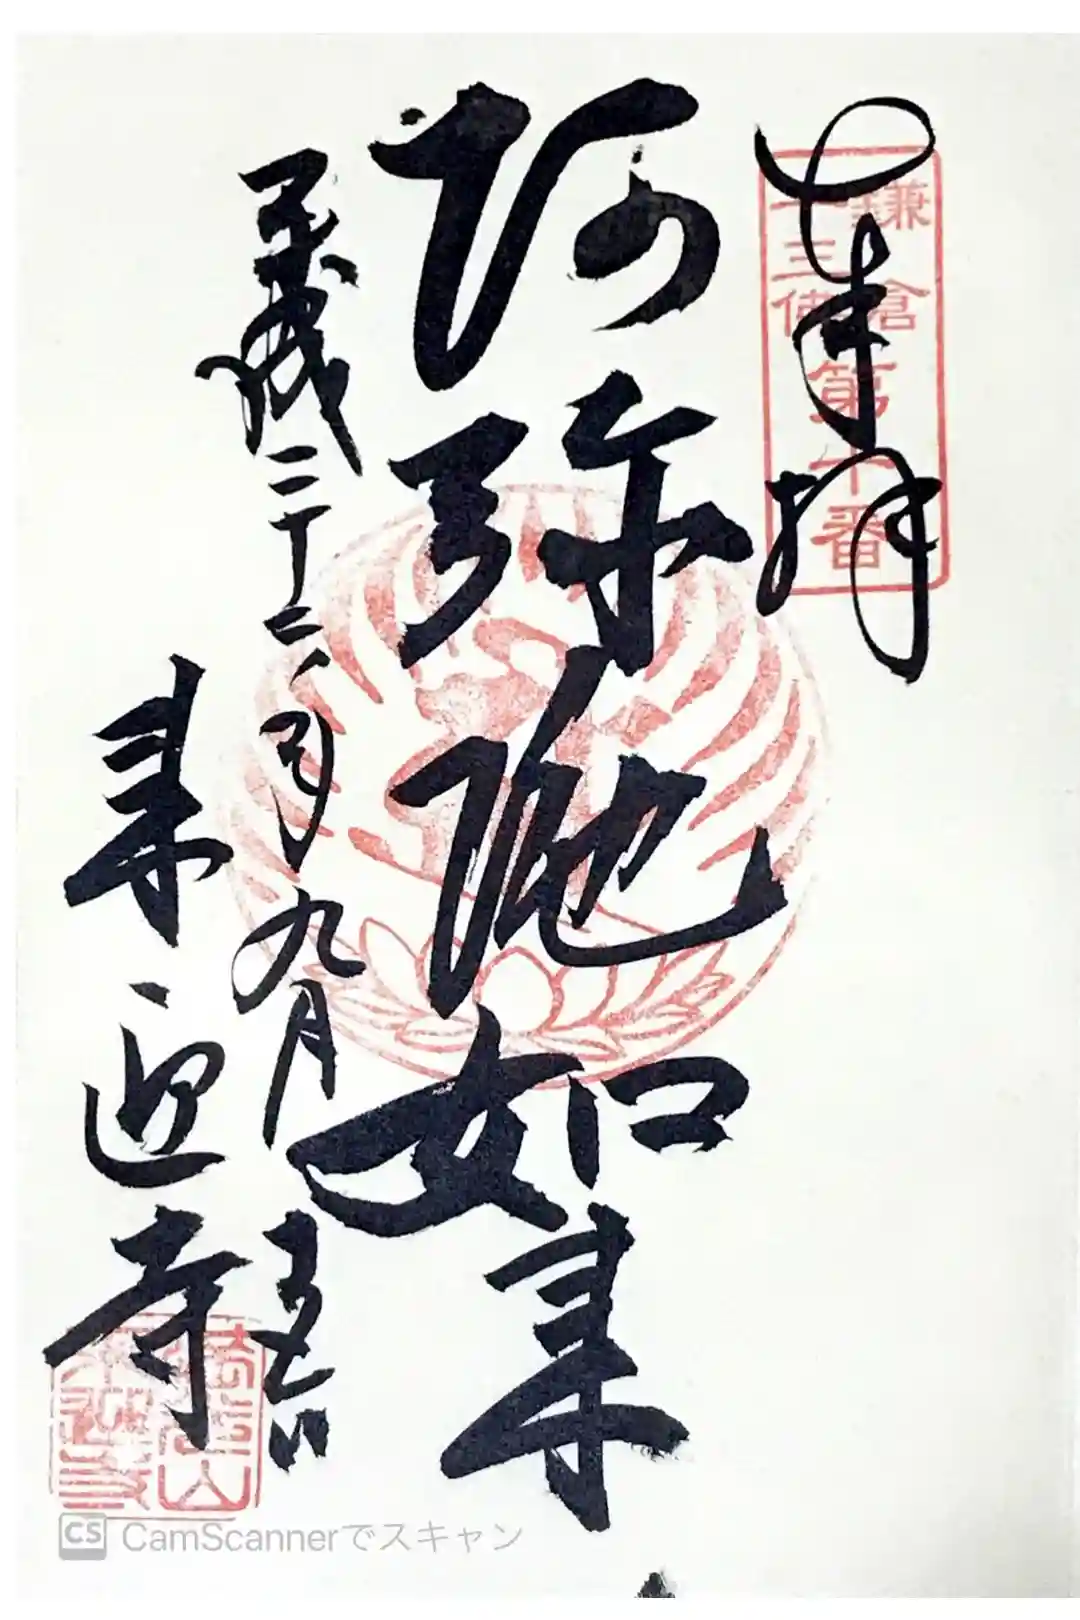 奉拝
鎌倉
十三佛
第十番
阿弥陀如来
平成二十二年九月
来迎寺
CS CamScannerでスキャン